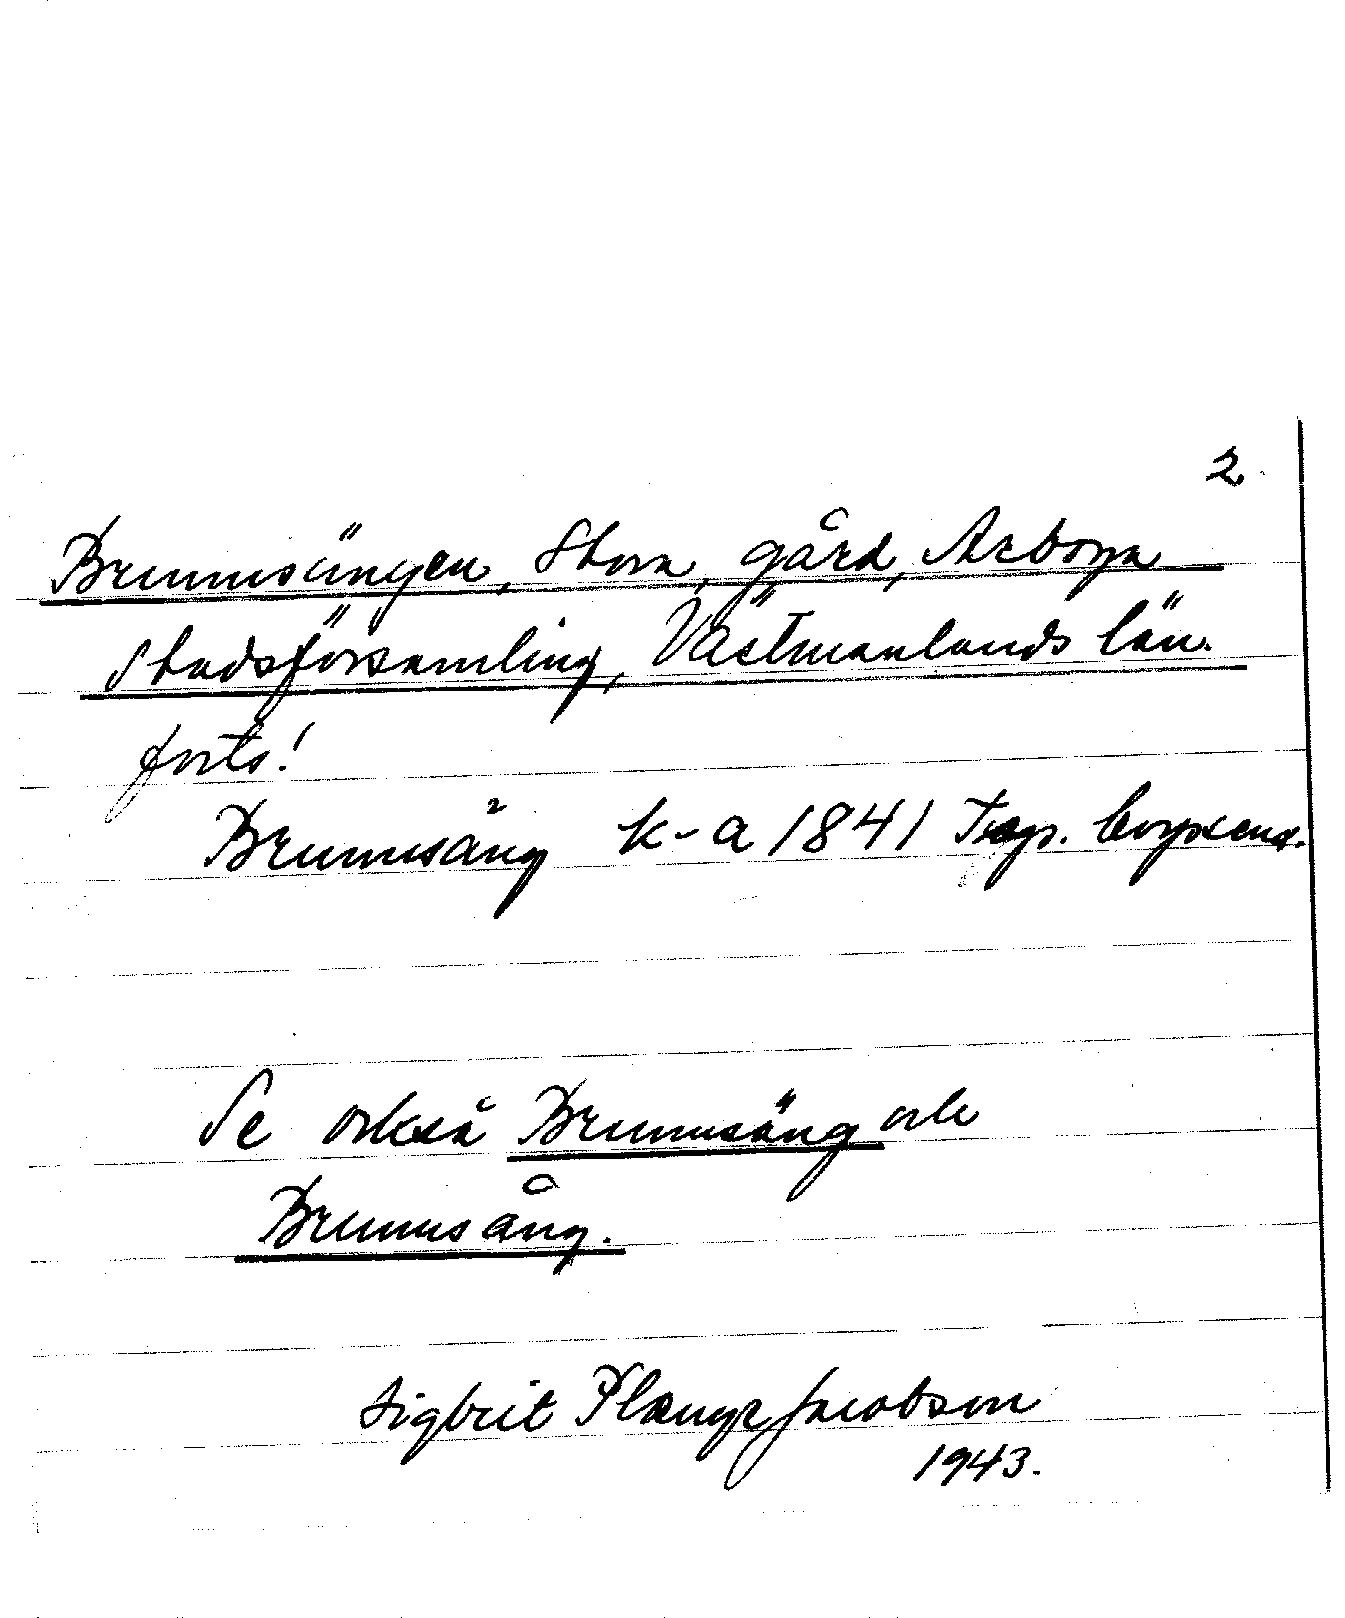 2.
Brunnsängen, Stora, gård, Arboga
stadsförsamling, Västmanlands län.
forts!
Brunnsäng k-a 1841 Top. corpsens.
Se också Brunnsäng och
Brunnsång.
Sigbrit Plænge Jacobson
1943.